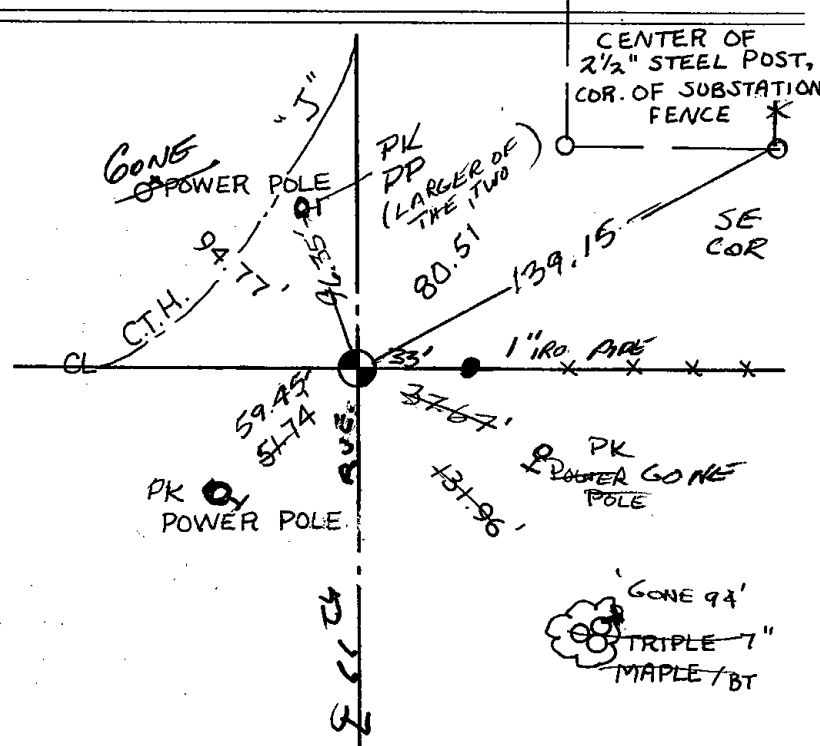 CENTER OF
2 1/2" STEEL POST,
COR. OF SUBSTATION
FENCE
"J"
GONE
POWER POLE
PK
PP
(LARGER OF
THE TWO)
94.77'
96.35'
80.51
139.15
SE
COR
C.T.H.
CL
33'
1" IRO. PIPE
59.45'
51.74
37.67'
AVE.
131.96'
PK
POWER GONE
POLE
PK
POWER POLE
'GONE 94'
TRIPLE 7"
MAPLE/BT